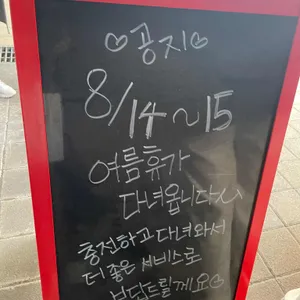 ♡공지♡
8/14~15
여름휴가
다녀옵니다~
충전하고 다녀와서
더 좋은 서비스로
보답드릴게요♡